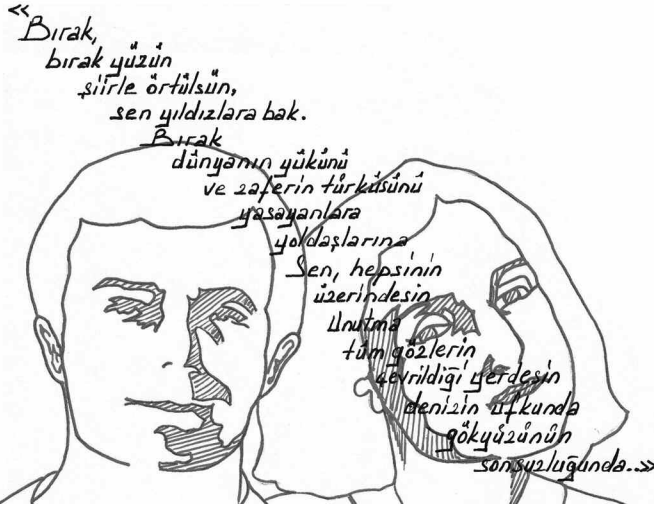 «
Bırak,
bırak yüzün
şiirle örtülsün,
sen yıldızlara bak.
Bırak
dünyanın yükünü
ve zaferin türküsünü
yaşayanlara
yoldaşlarına
Sen, hepsinin
üzerindesin
Unutma
tüm gözlerin
çevrildiği yerdesin
denizin ufkunda
gökyüzünün
sonsuzluğunda..»